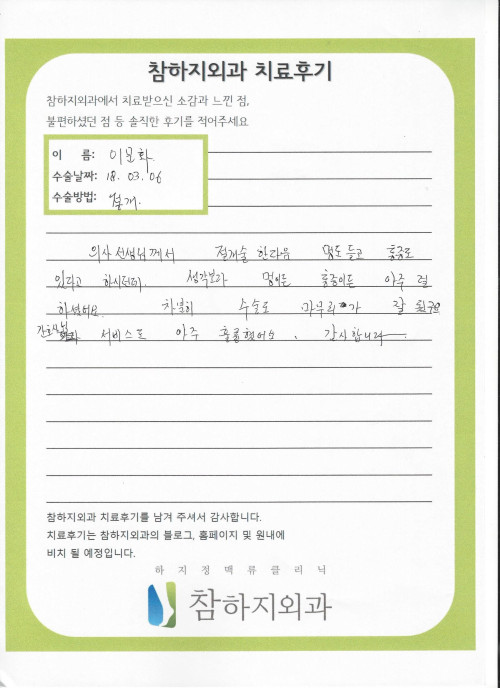 참하지외과 치료후기
참하지외과에서 치료받으신 소감과 느낀 점,
불편하셨던 점 등 솔직한 후기를 적어주세요
이 름: 이문화
수술날짜: 18. 03. 06
수술방법: 절개.
의사선생님께서 절개술 한다음 멍도 들고 통증도
있다고 하시던데. 생각보다 멍이든 통증이든 아주 덜
하셨어요. 차별히 수술도 마무리가 잘
간호사님 서비스도 아주 훌륭했어요. 감사합니다
참하지외과 치료후기를 남겨 주셔서 감사합니다.
치료후기는 참하지외과의 블로그, 홈페이지 및 원내에
비치 될 예정입니다.
하지정맥류클리닉
참하지외과